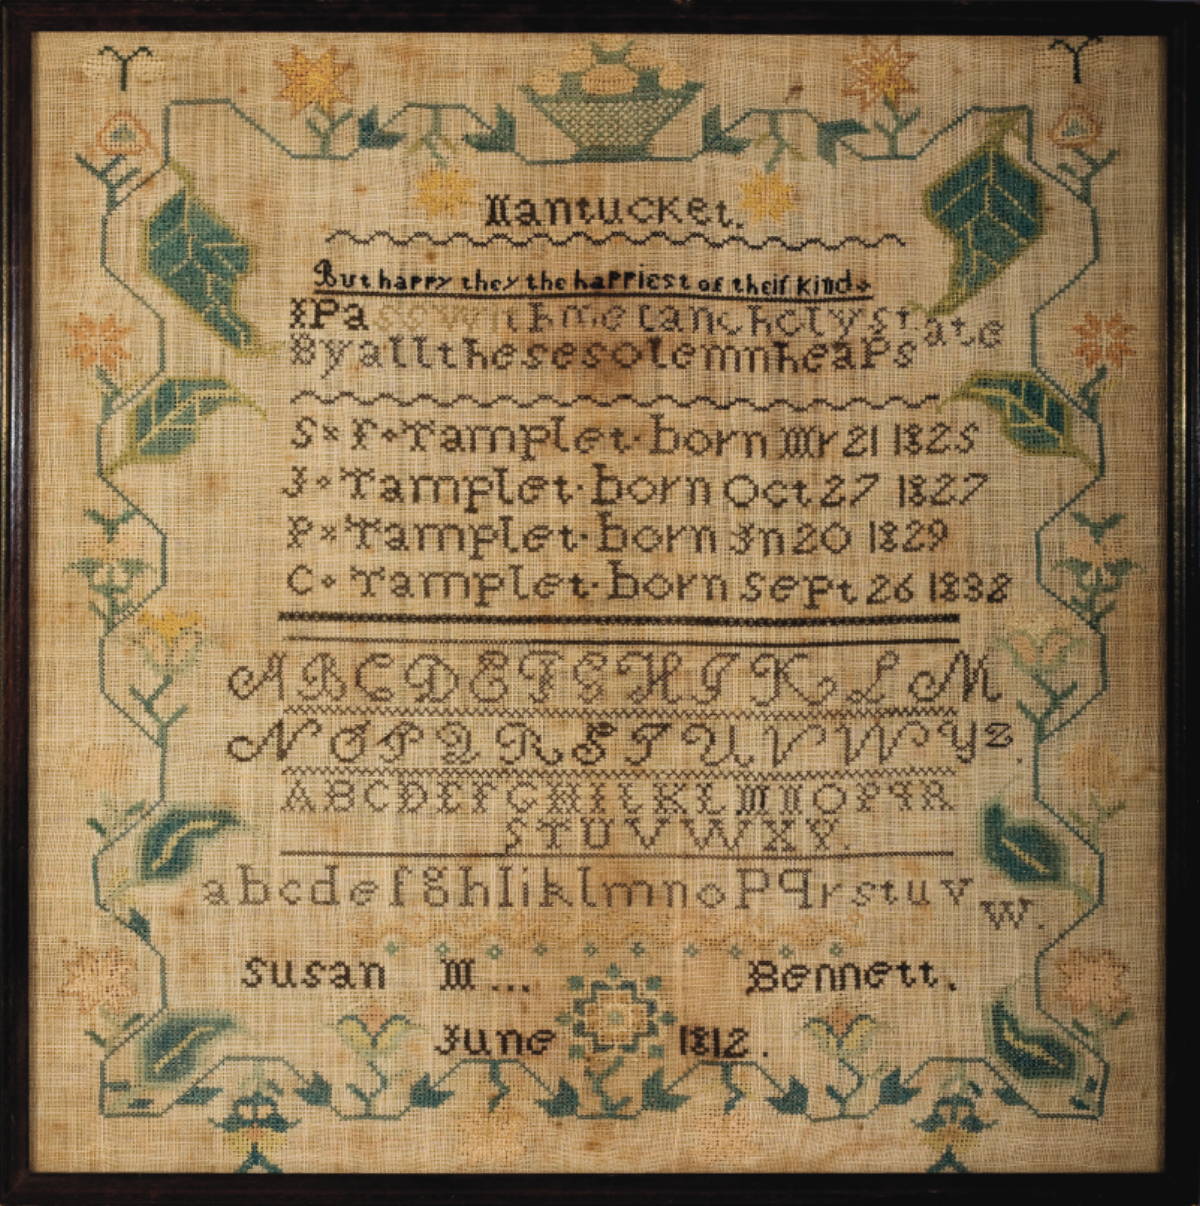 Nantucket.
But happy they the happiest of their kind
I Pass with melancholy state
By all these solemn heaps
S × F Tamplet. born Mr 21 1825
J Tamplet. born Oct 27 1827
P × Tamplet. born Jn 20 1829
C Tamplet. born Sept 26 1838
A B C D E F G H I K L M
N O P Q R S T U V W Y Z.
A B C D E F G H I K L M N O P Q R
S T U V W X Y.
a b c d e f g h i k l m n o p q r s t u v w.
Susan M... Bennett.
June 1812.